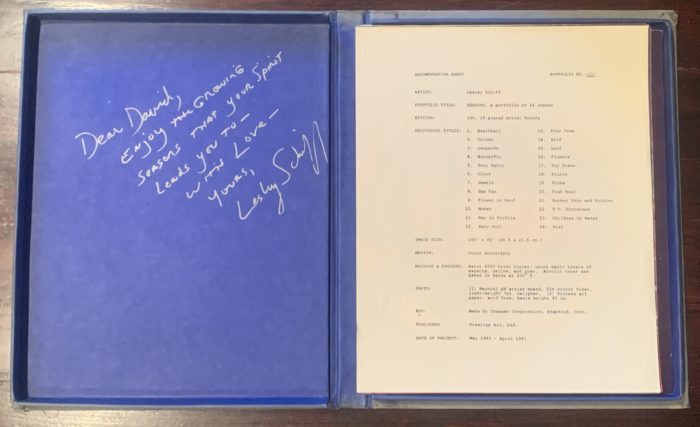 Dear David,
Enjoy the Growing
Seasons that your Spirit
Leads you to—
With Love—
Yours,
Lesley Schiff
DOCUMENTATION SHEET
PORTFOLIO NO.
ARTIST: Lesley Schiff
PORTFOLIO TITLE: SEASONS, a portfolio of 24 images
EDITION: 100, 25 signed Artist Proofs
INDIVIDUAL TITLES:
1. Beachball
2. Column
3. Leopards
4. Butterfly
5. Sony Radio
6. Glove
7. Jewels
8. Sea Fan
9. Flower in Hand
10. Woman
11. Man in Profile
12. Baby Doll
13. Pine Tree
14. Bird
15. Leaf
16. Flowers
17. Toy Snake
18. Fruits
19. Globe
20. Fish Bowl
21. Rocket Ship and Soldier
22. T.V. Optissone
23. Children in Water
24. Star
IMAGE SIZE:
MEDIUM: Color xerography
MACHINE & PROCESS: Xerox 6500 Color Copier, using basic toners of
magenta, yellow, and cyan. Acrylic toner was
baked in Xerox at 200° F.
PAPER: (1) Neutral pH artist board, 25% cotton fiber,
light-weight 7pt. caliper. (2) Process art
paper, acid free, basis weight 80 lb.
BOX: Made by Champen Corporation, Stamford, Conn.
PUBLISHER Prestige Art, Ltd.
DATE OF PROJECT: May 1980 - April 1981